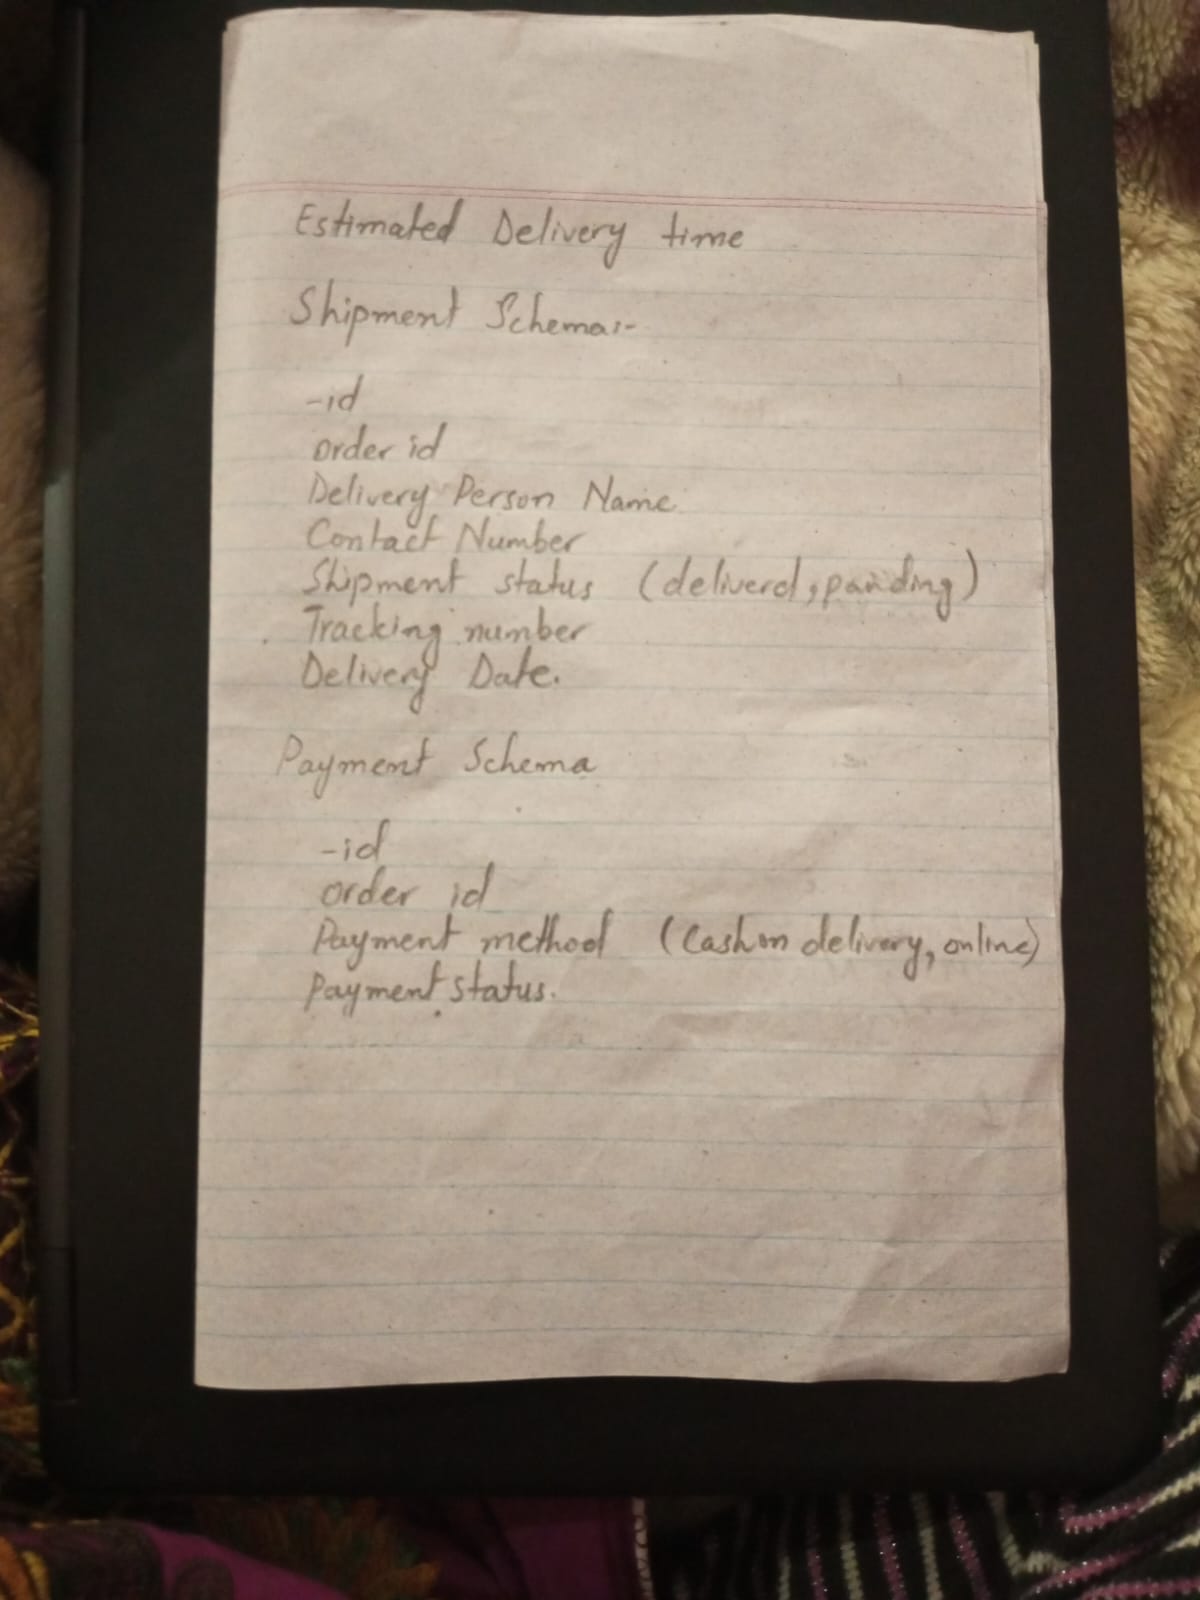 Estimated Delivery time
Shipment Schema:-
-id
order id
Delivery Person Name
Contact Number
Shipment status (deliverd, panding)
Tracking number
Delivery Date.
Payment Schema
-id
order id
Payment method (Cash on delivery, online)
Payment status.